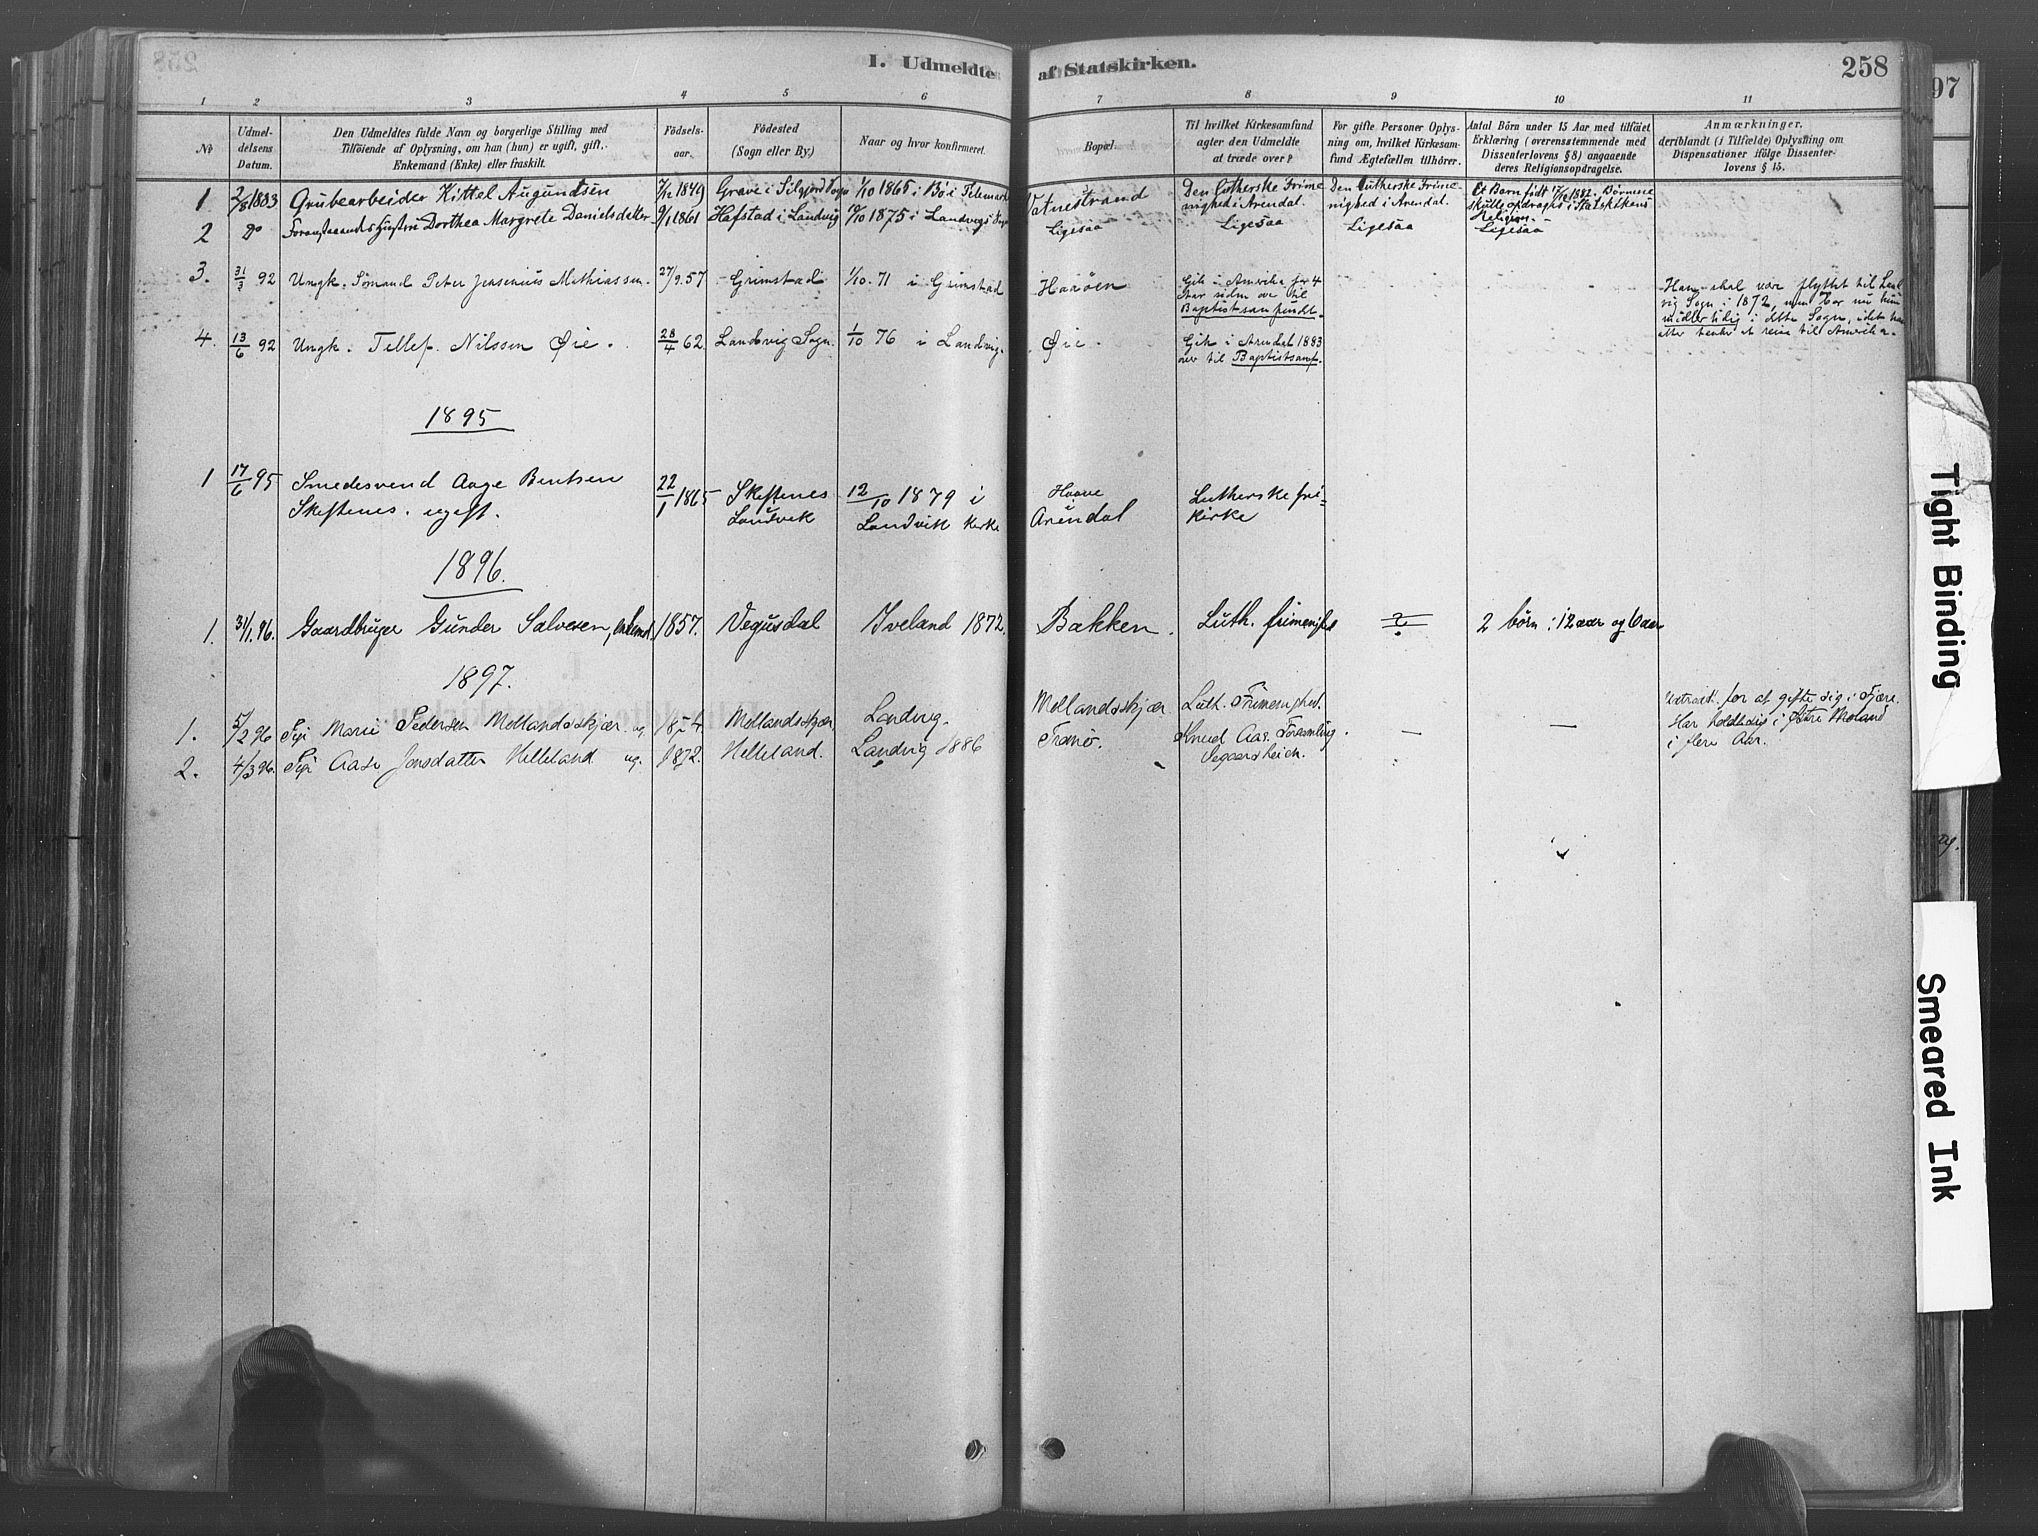 258
I. Udmeldte af Statskirken.
1 2 3 4 5 6 7 8 9 10 11
No
Udmel-
delsens
Datum.
Den Udmeldtes fulde Navn og borgerlige Stilling med
Tilføiende af Oplysning, om han (hun) er ugift, gift,
Enkemand (Enke) eller fraskilt.
Fødsels-
aar.
Fødested
(Sogn eller By.)
Naar og hvor konfirmeret.
Bopæl.
Til hvilket Kirkesamfund
agter den Udmeldte
at træde over?
For gifte Personer Oplys-
ning om, hvilket Kirkesam-
fund Ægtefællen tilhører.
Antal Børn under 15 Aar med tilføiet
Erklæring (overensstemmende med
Dissenterlovens § 8) angaaende
deres Religionsopdragelse.
Anmærkninger,
deriblandt (i Tilfælde) Oplysning om
Dispensationer ifølge Dissenter-
lovens § 15.
1 2/8 1883 Grubearbeider Kittel Augundsen 7/12 1849 Grave i Siljord Sogn 1/10 1865 i Bø i Telemark Vatnestrand
Den lutherske Frime
nighed i Arendal.
Den lutherske Frime-
nighed i Arendal.
Et Barn født 1882. Børnene
skulle opdrages i Statskirkens
Religion.
2 Do Foranstaaendes Hustru Dorthea Margrete Danielsdatter 9/1 1861 Hafstad i Landvig 10/10 1875 i Landvigs Ligesaa Ligesaa Ligesaa Ligesaa
3. 31/3 92 Ungk. Sømand Peter Jensenius Mathiassen. 27/9 57 Grimstad 1/10 71 i Grimstad Haaøen
Gik i Amerika for 4
Aar siden over til
Baptistsamfundet.
Han skal være flyttet til Land
vig Sogn i 1872, men bor nu kun
midlertidig i dette Sogn, idet han
atter tænker at reise til Amerika.
4. 13/6 92 Ungk. Tellef Nilssen Øie. 28/4 62. Landvig Sogn. 1/10 76 i Landvig. Øie.
Gik i Arendal 1883
over til Baptistsamf.
1895
1 17/6 95 Smedesvend Aage Bentsen
Skeftenes. ugift.
22/1 1865
Skeftenes
Landvik
12/10 1879 i
Landvik Kirke
Haave
Arendal
Lutherske fri-
kirke
1896.
1. 31/1 96. Gaardbruger Gunder Salvesen, enkemd. 1857. Vegusdal Iveland 1872. Bakken. Luth. frimenighed ? 2 børn: 12 aar og 6 aar
1897.
1. 5/2 96 Pige Marie Pedersen Mellandsskjær ug. 1854 Mellandsskjær Landvig. Mellandsskjær Luth. Frimenighed. — —
Udtraadt for at gifte sig i Fjære.
Har holdt sig i Østre Moland
i flere Aar.
2. 4/3 96. Pige Aase Jonsdatter Helleland ug. 1872. Helleland. Landvig 1886 Tromø.
Knud Aas. Forsamling.
Vegaardsheien.
Tight Binding
Smeared Ink
97